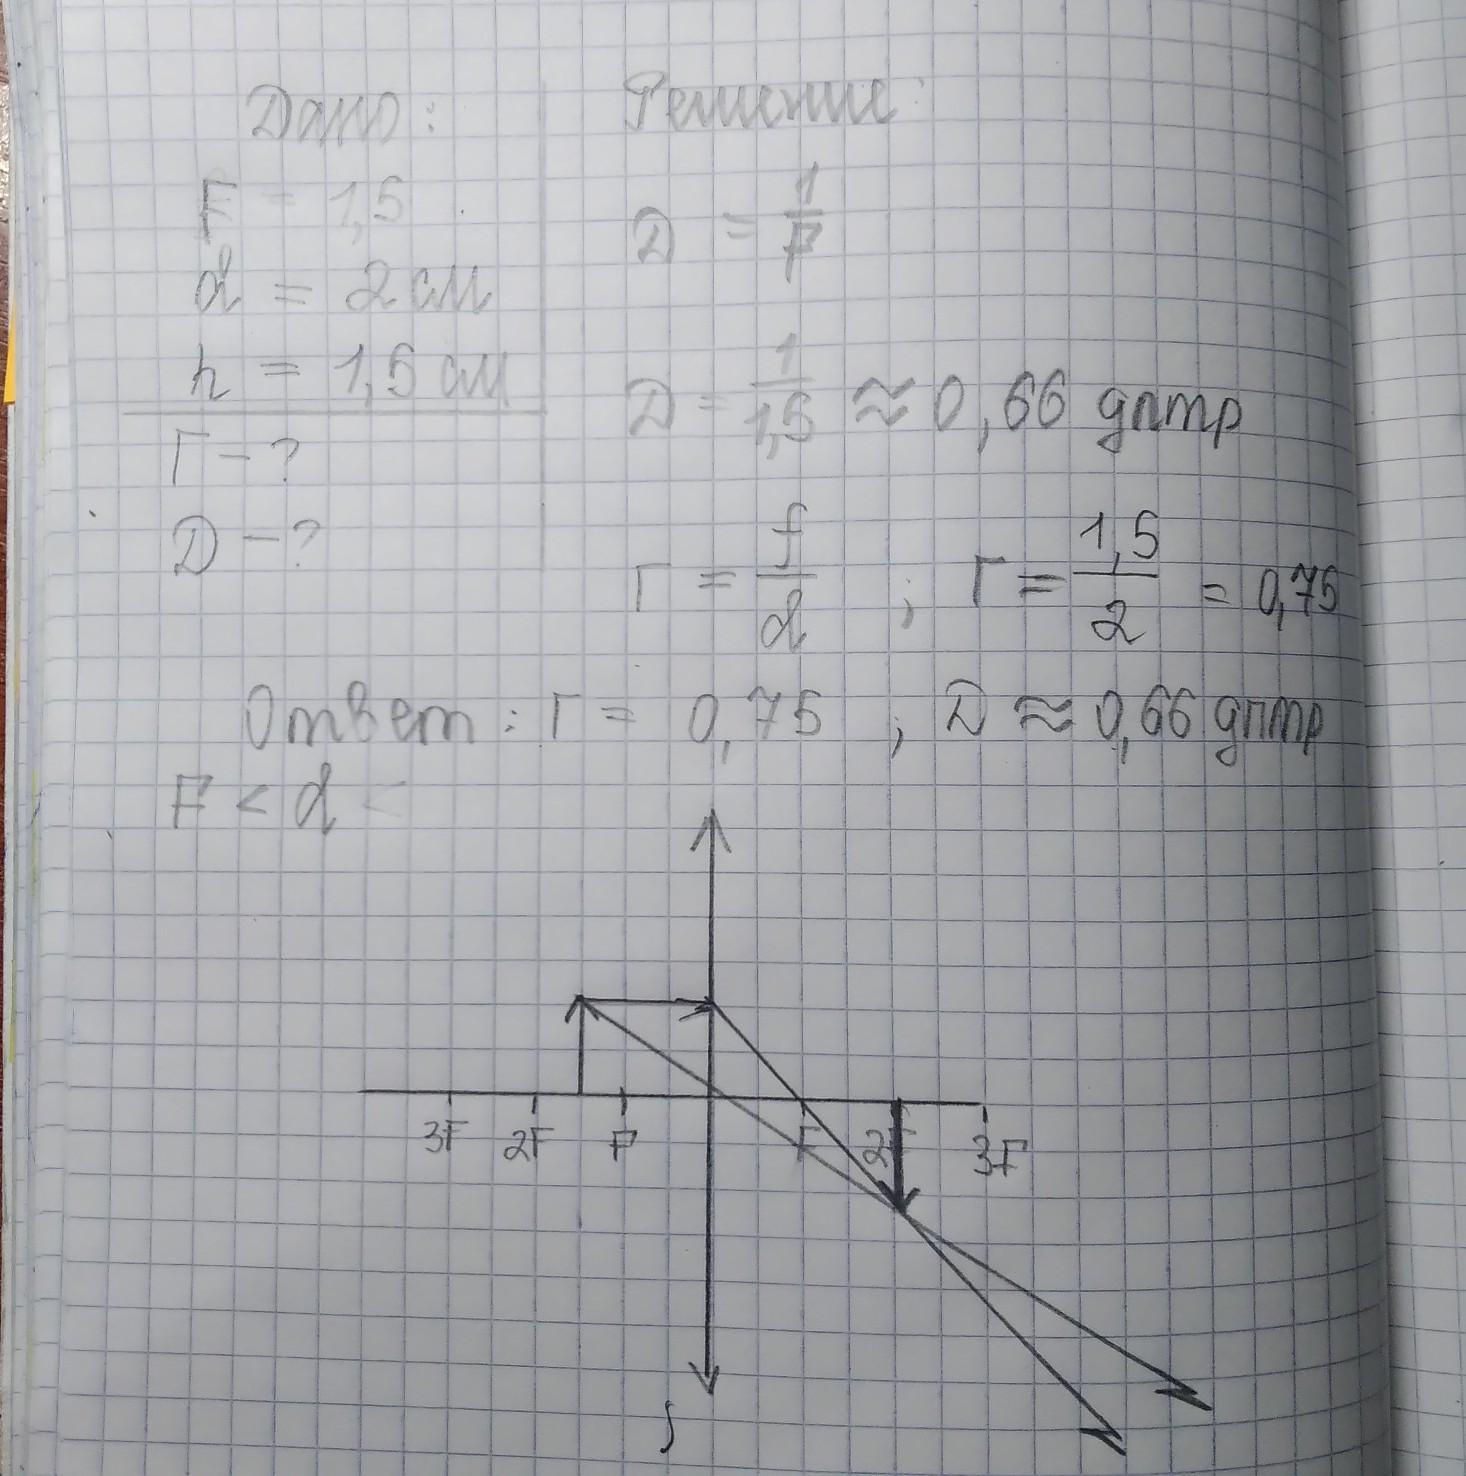 Дано: Решение:
F = 1,5 D = 1/F
d = 2 см
h = 1,5 см D = 1/1,5 ≈ 0,66 дптр
Г - ?
D - ? Г = f/d ; Г = 1,5/2 = 0,75
Ответ: Г = 0,75 ; D ≈ 0,66 дптр
F < d <
3F 2F F F 2F 3F